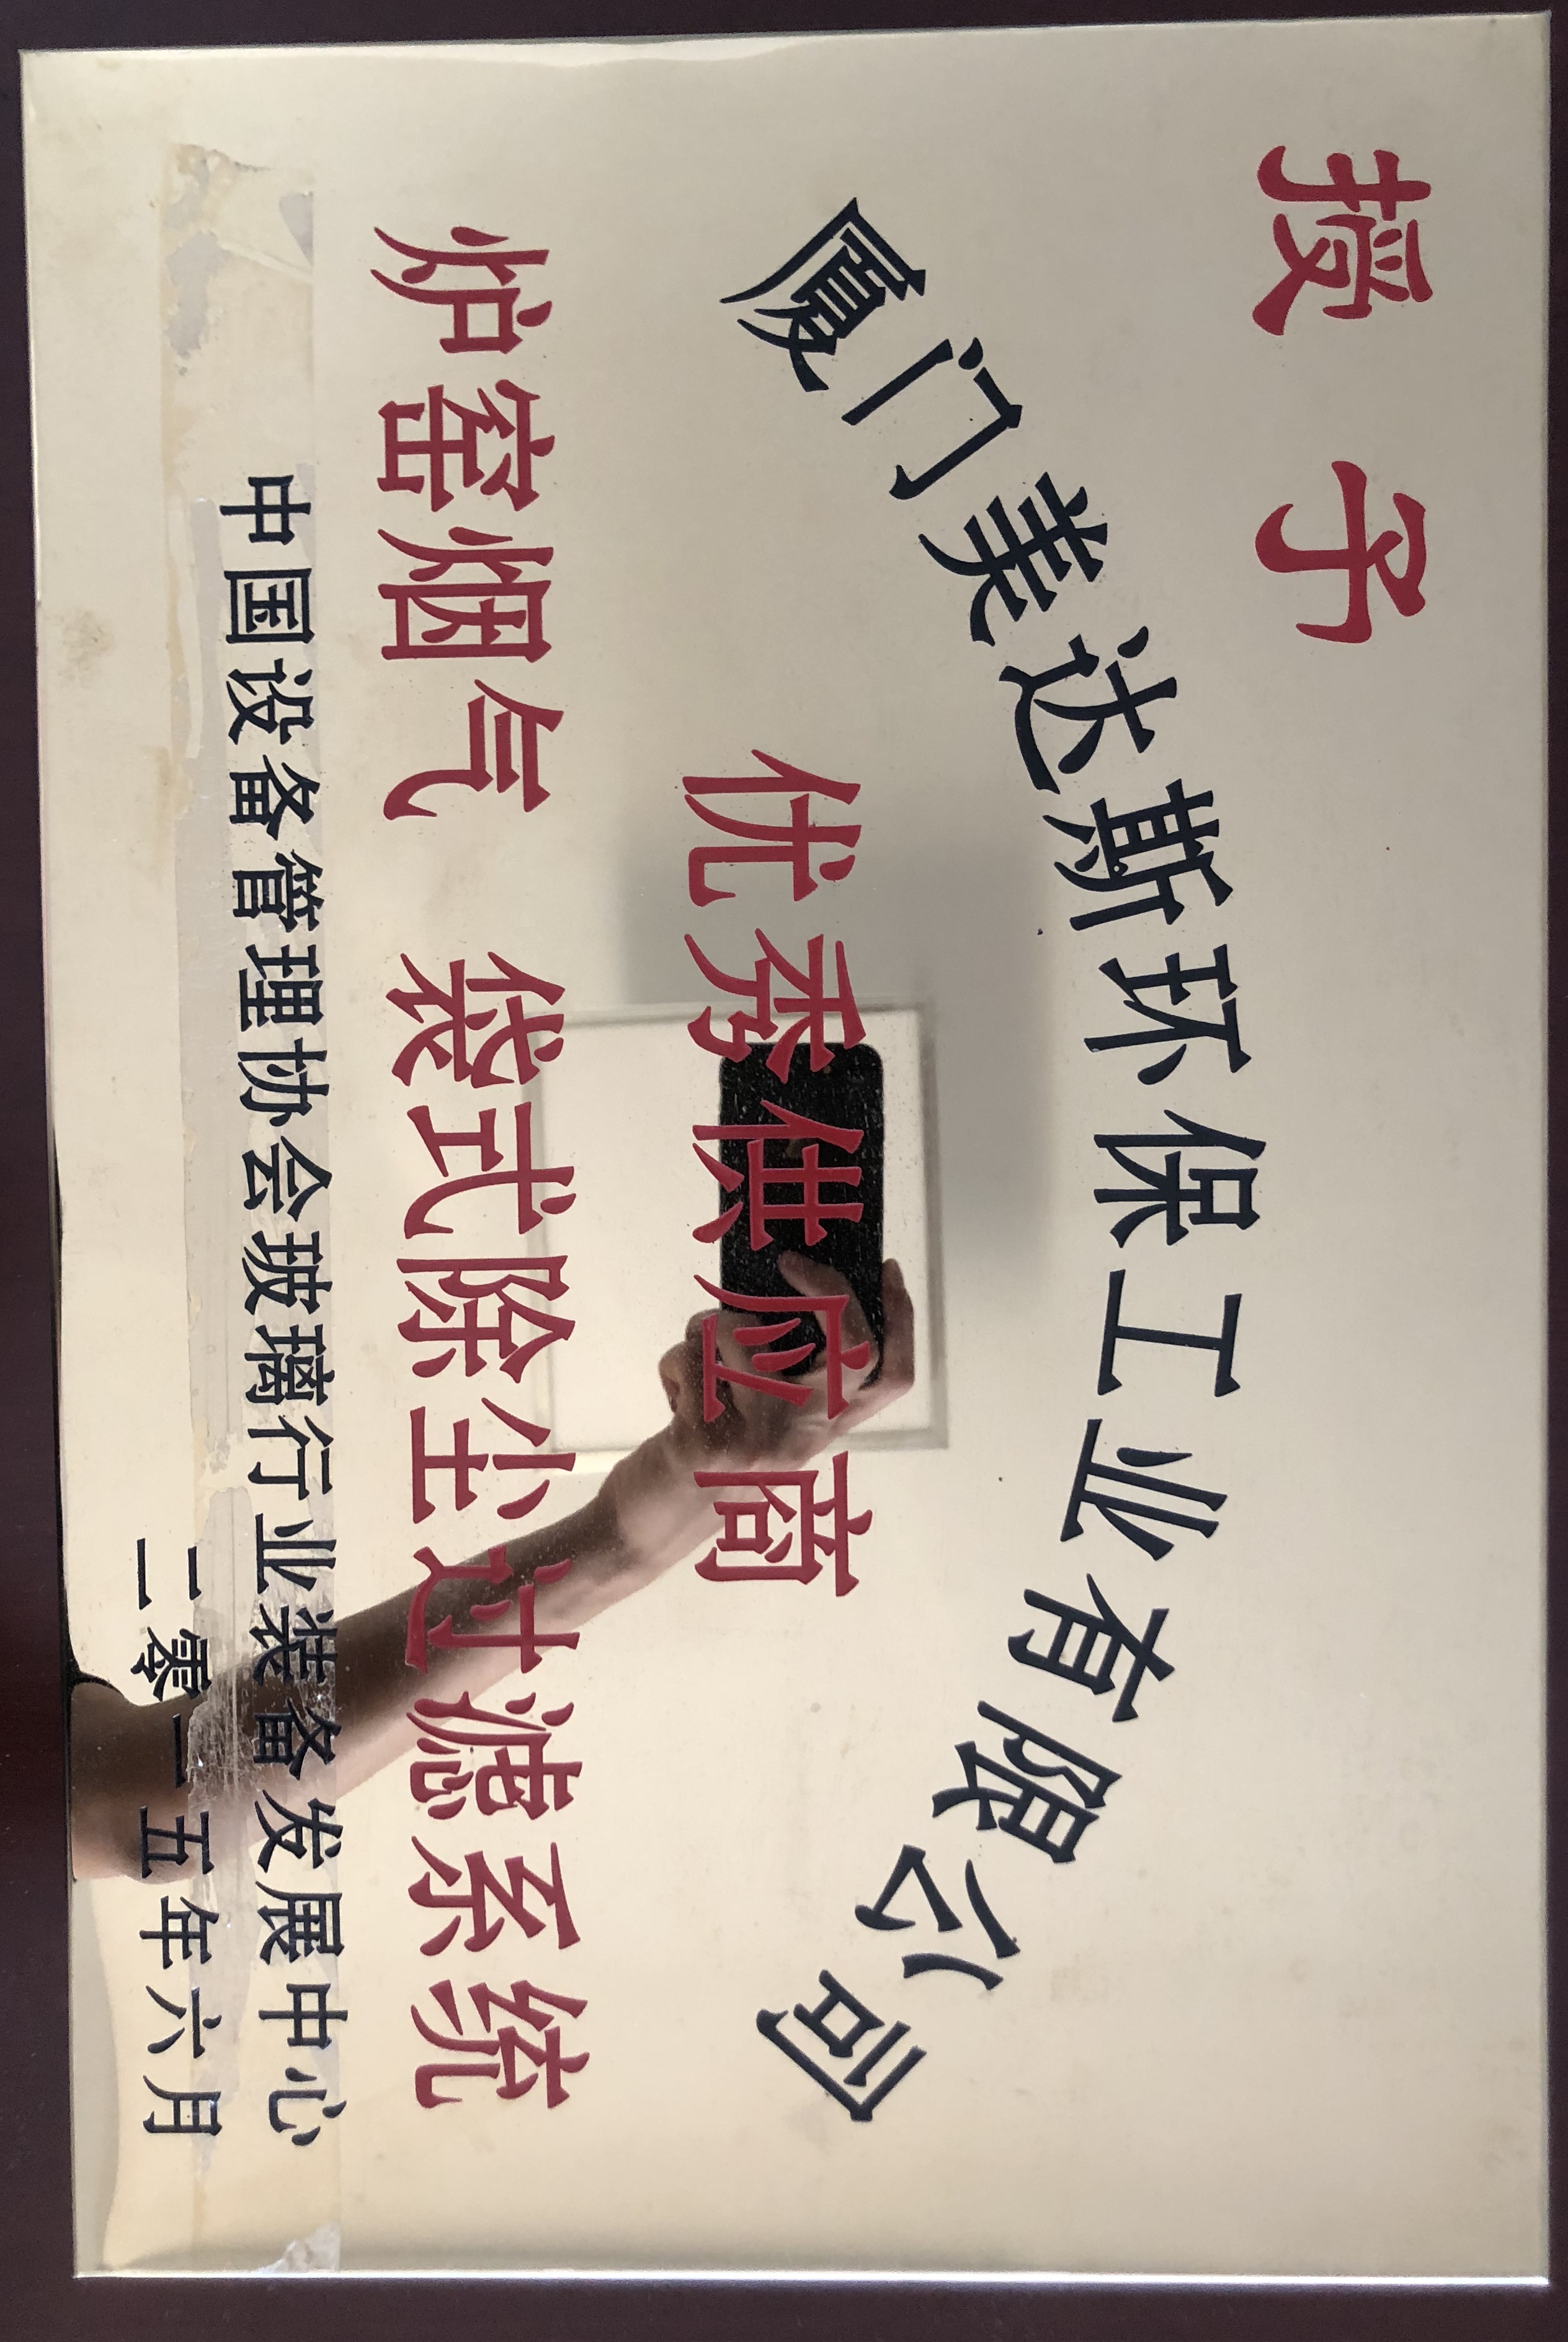 授予
厦门美达斯环保工业有限公司
优秀供应商
炉窑烟气 袋式除尘过滤系统
中国设备管理协会玻璃行业装备发展中心
二零一五年六月